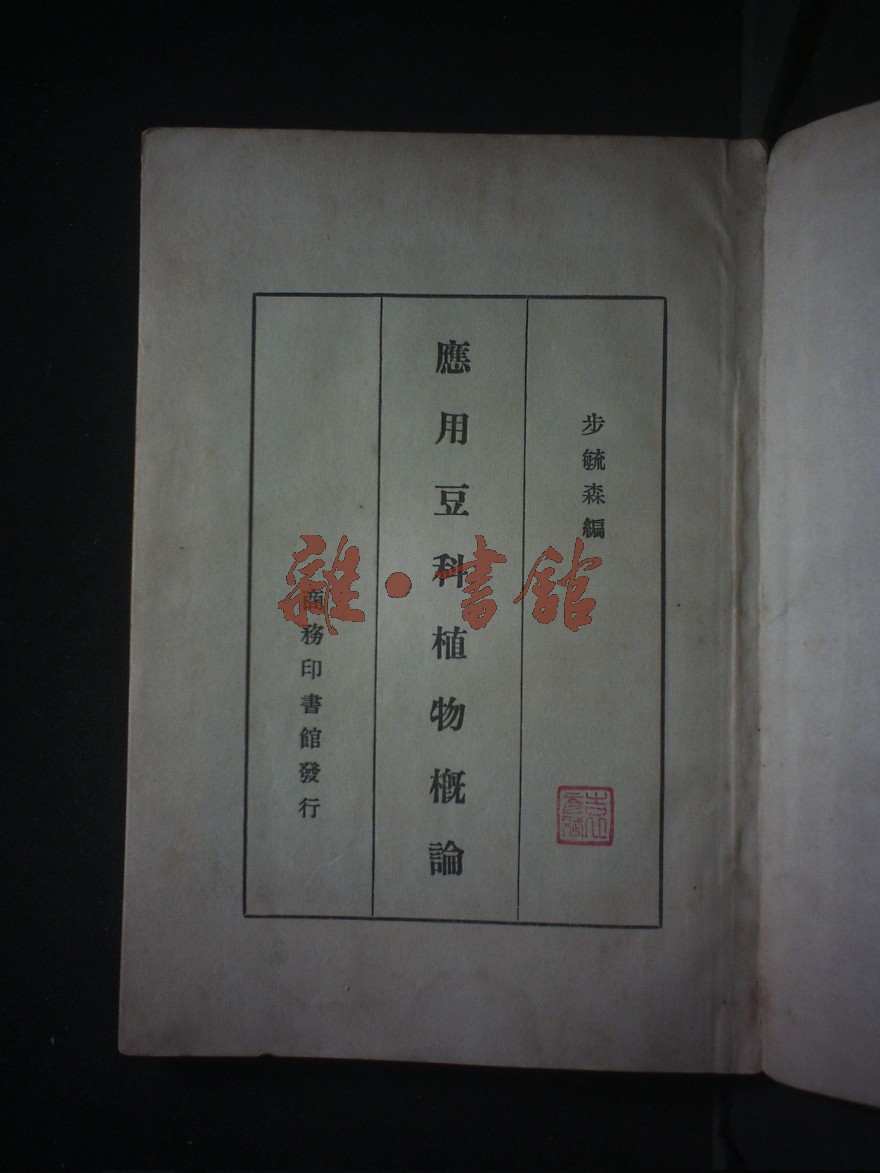 步毓森編
應用豆科植物概論
商務印書館發行
雜·書館